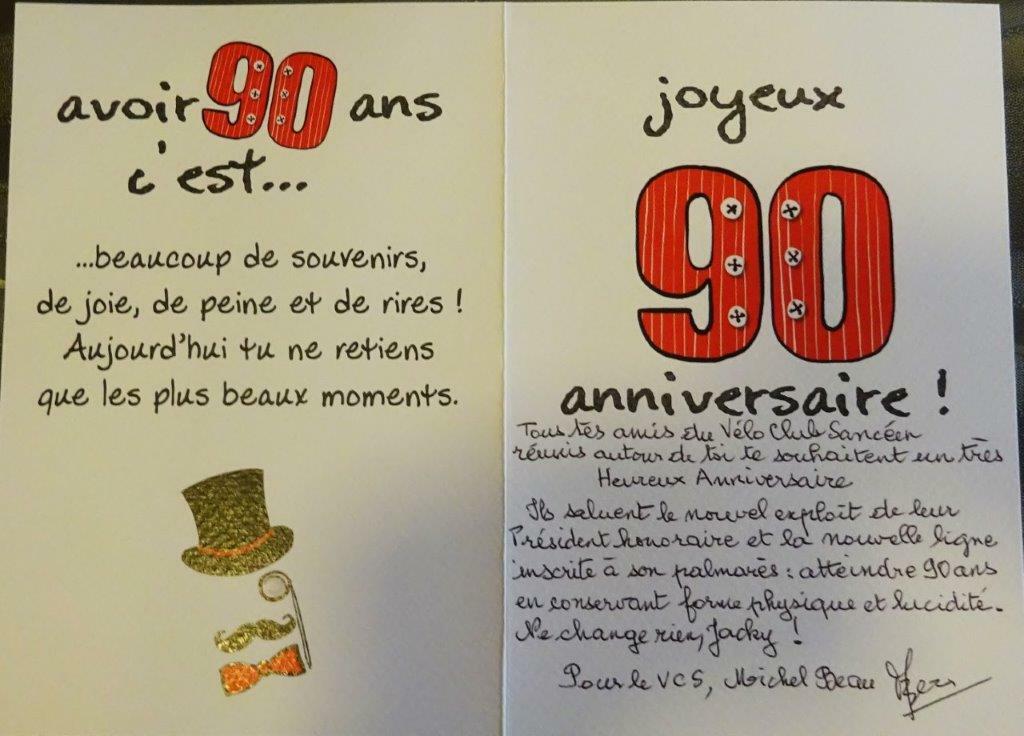 avoir 90 ans
c'est...
...beaucoup de souvenirs,
de joie, de peine et de rires !
Aujourd'hui tu ne retiens
que les plus beaux moments.
joyeux
90
anniversaire !
Tous tes amis du Vélo Club Sancéen
réunis autour de toi te souhaitent un très
Heureux Anniversaire
Ils saluent le nouvel exploit de leur
Président honoraire et la nouvelle ligne
inscrite à son palmarès : atteindre 90 ans
en conservant forme physique et lucidité.
Ne change rien, Jacky !
Pour le VCS, Michel Beau